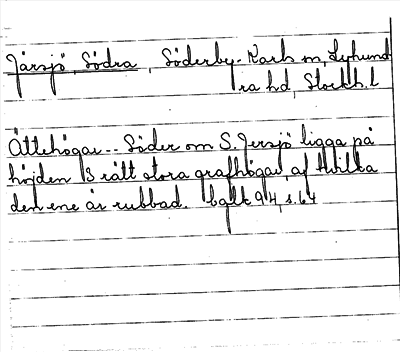 Järsjö, Södra, Söderby-Karls sn, Lyhund
ra hd, Stockh. l
Ättehögar -- Söder om S. Jersjö ligga på
höjden 3 rätt stora grafhögar, af hvilka
den ene är rubbad. bglt 94, s. 64